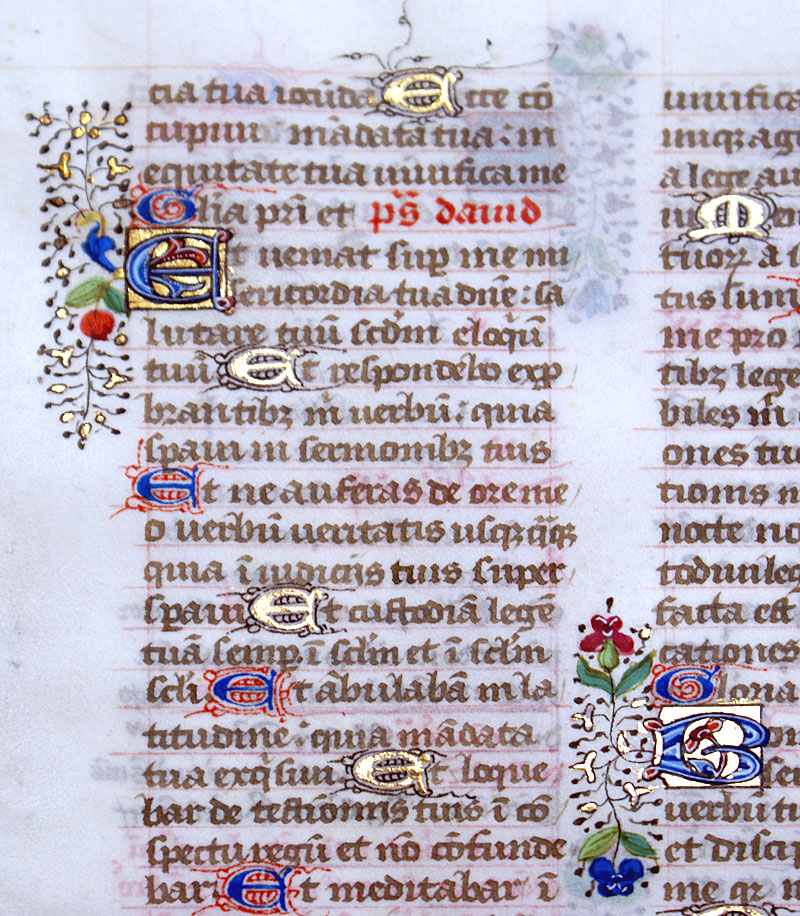 cia tua iocūda Ecce cō
cupiui mādata tua : in
equitate tua uiuifica me
Glīa pr̄i et ps̄ dauid
Et ueniat sup̱ me mi
sericordia tua dn̄e : sa
lutare tuū sc̄dm eloqū
tuū Et respondebo exp̱
brantibz m̄ uerbū : quia
sp̱aui in sermonibz tuis
Et ne auferas de ore me
o uerbū ueritatis usqz q̄qz
quia ī iudiciis tuis super
sp̱aui Et custodiā legē
tuā semp̱. ī scl̄m et ī scl̄m
scl̄i Et ābulabā in la
titudine : quia mādata
tua exq̄siui Et loque
bar de testionijs tuis ī cō
spectu regū et nō cōfunde
bar Et meditabar ī
uiuifica
iniqz ag
a lege au
tuorz a
tus sum
me pro
tibz lege
biles m̄
ones tu
tionis m
nocte no
todiui leg
facta est
cationes
Gloria
Bon
ser
uerbū tu
et discip
me qr m